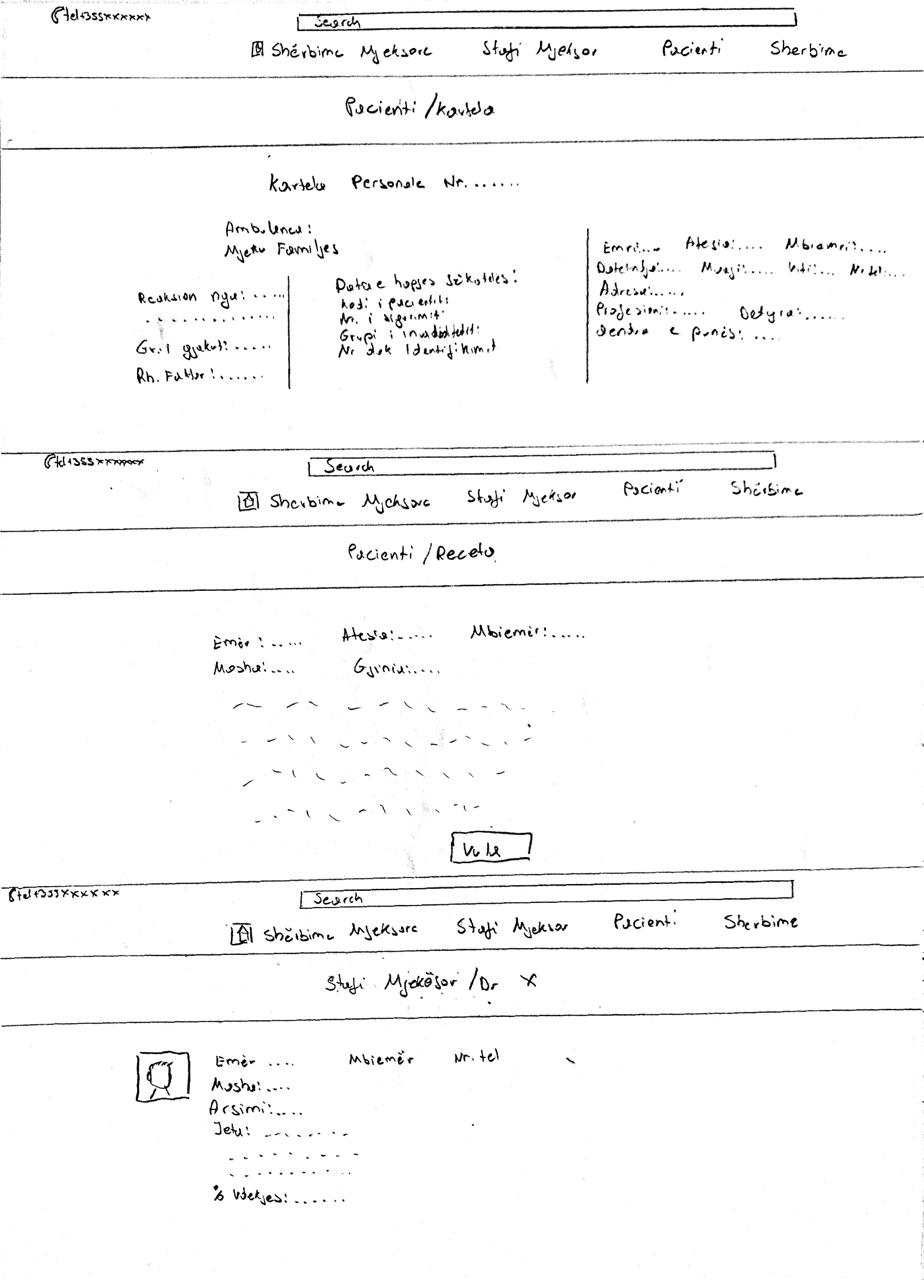 tel+355xxxxxx
Search
Shërbime Mjeksore Stafi Mjeksor Pacienti Sherbime
Pacienti / Kartela
Kartela Personale Nr. ......
Ambulanca:
Mjeku Familjes
Reaksion nga: .....
.............
Gr. I gjakut: .....
Rh. Faktor: ......
Data e hapjes së kartelës:
Kodi i pacientit:
Nr. i sigurimit:
Grupi i invaliditetit:
Nr dok Identifikimit
Emri:.... Atesia:.... Mbiemri:....
Datelindja:.... Muaji:.... Viti:... Nr tel:...
Adresa:.....
Profesioni:..... Detyra:......
Qendra e punës: ....
tel+355xxxxxx
Search
Sherbime Mjeksore Stafi Mjeksor Pacienti Shërbime
Pacienti / Receta
Emër : ..... Atesia:..... Mbiemër:.....
Mosha:.... Gjinia:....
Vula
tel+355xxxxxx
Search
Shërbime Mjeksore Stafi Mjeksor Pacienti Sherbime
Stafi Mjekësor / Dr X
Emër .... Mbiemër Nr. tel
Mosha:....
Arsimi:....
Jeta: ........
% Vdekjes:......